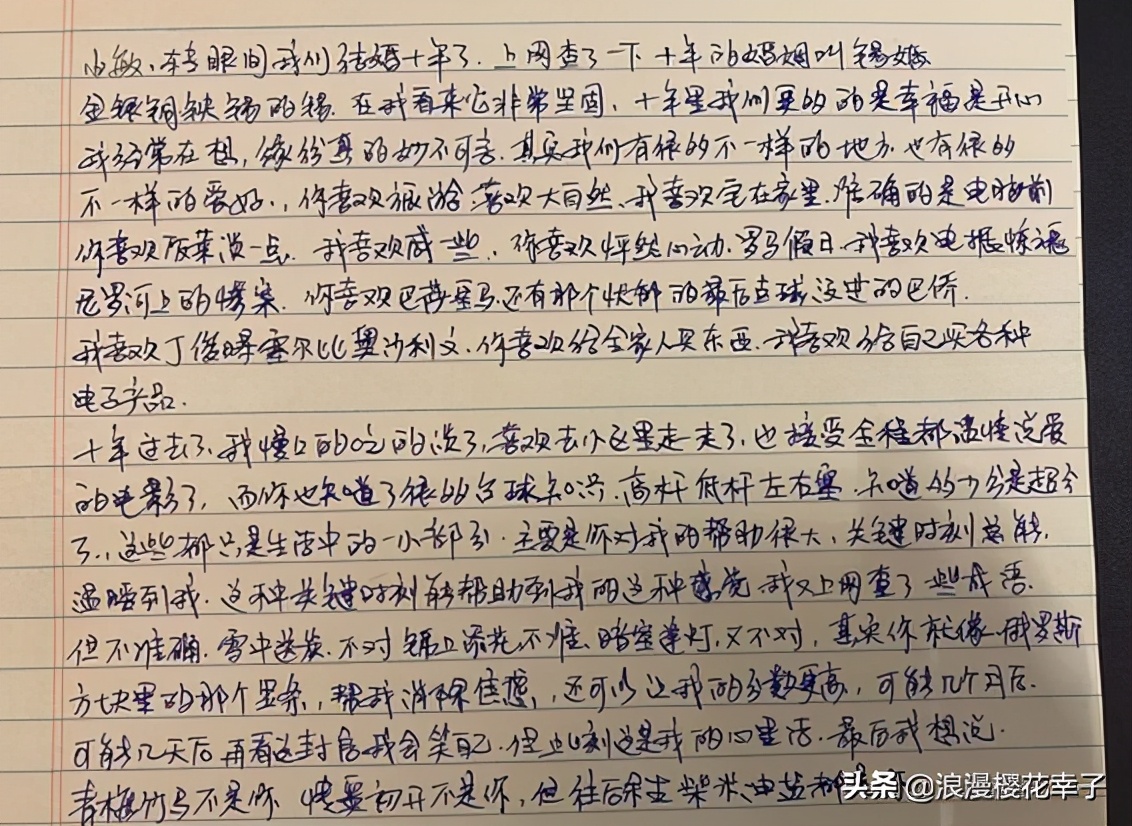 小敏、转眼间我们结婚十年了.上网查了一下十年的婚姻叫锡婚
金银铜铁锡的锡.在我看来它非常坚固、十年里我们更多的是幸福是开心
我经常在想,缘份真的妙不可言.其实我们有很多不一样的地方也有很多
不一样的爱好.,你喜欢旅游.喜欢大自然、我喜欢宅在家里.准确的是电脑前
你喜欢饭菜淡一点.我喜欢咸一些.你喜欢怦然心动.罗马假日.我喜欢电锯惊魂
尼罗河上的惨案.你喜欢巴蒂罗马还有那个忧郁的最后点球没进的巴乔.
我喜欢丁俊晖塞尔比奥沙利文.你喜欢给全家人买东西.我喜欢给自己买各种
电子产品.
十年过去了.我慢慢的吃的淡了,喜欢去小区里走一走了,也接受全程都温情说爱
的电影了,而你也知道了很多台球知识.高杆低杆左右塞.知道多少分是超分
了.,这些都只是生活中的一小部分.主要是你对我的帮助很大、关键时刻总能.
温暖到我.这种关键时刻能帮助到我的这种感觉.我又上网查了一些成语.
但不准确.雪中送炭.不对锦上添花不准.暗室逢灯,又不对,其实你就像俄罗斯
方块里的那个竖条,帮我消除焦虑,还可以让我的分数更高,可能几个月后.
可能几天后再看这封信我会笑自己.但此刻这是我的心里话.最后我想说.
青梅竹马不是你 情窦初开不是你,但往后余生柴米油盐都
头条@浪漫樱花幸子